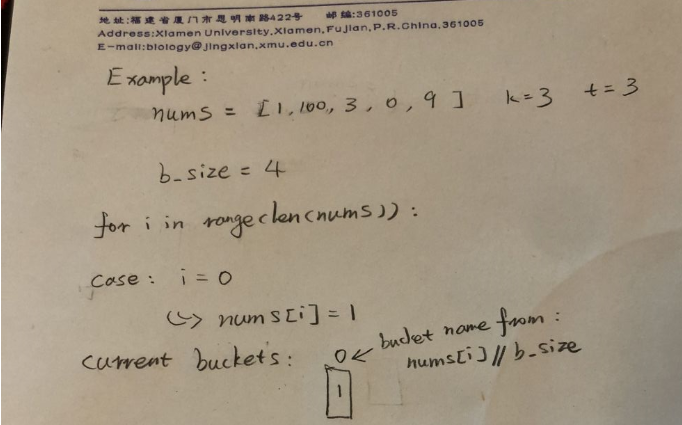 地址:福建省厦门市思明南路422号 邮编:361005
Address:Xiamen University,Xiamen,FuJian,P.R.China,361005
E-mail:biology@jingxian.xmu.edu.cn
Example:
nums = [1,100,3,0,9] k=3 t=3
b_size = 4
for i in range(len(nums)):
case: i=0
↳ nums[i]=1
current buckets: 0 ← bucket name from:
nums[i]//b_size
1